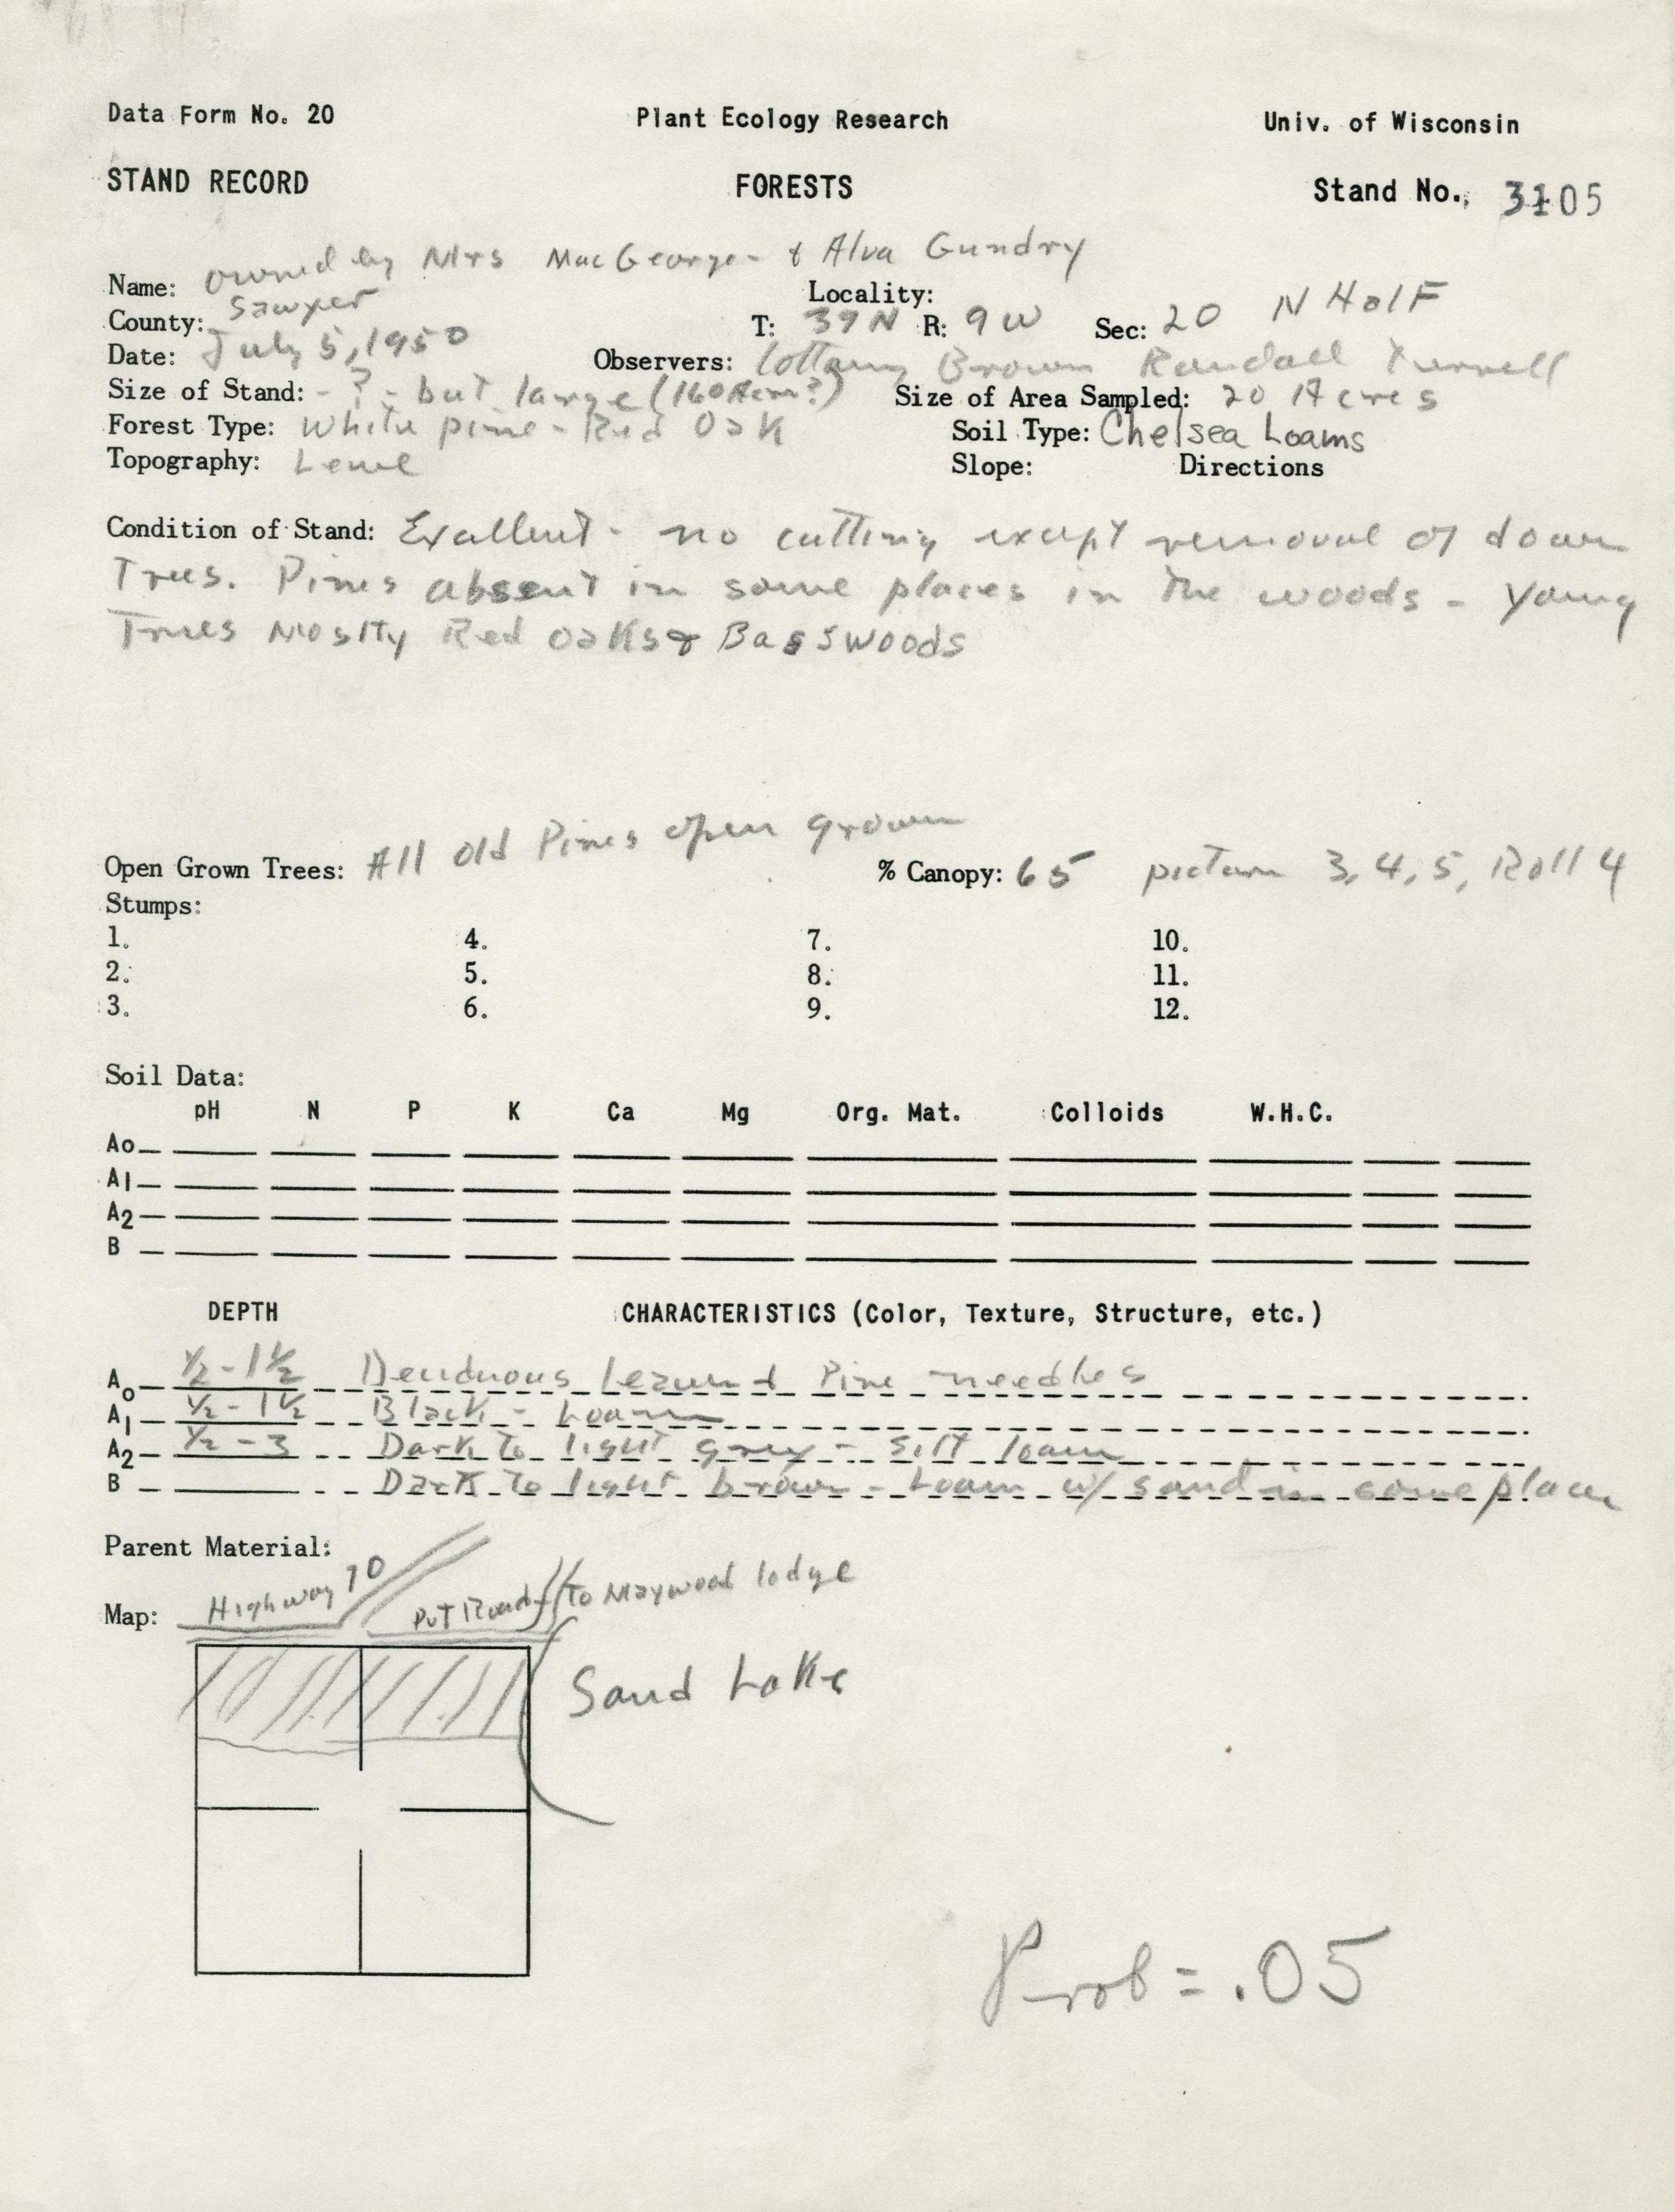 Data Form No. 20 Plant Ecology Research Univ. of Wisconsin
STAND RECORD FORESTS Stand No. 3105
Name: owned by Mrs MacGeorge - & Alva Gundry Locality:
County: Sawyer T: 39N R: 9W Sec: 20 N Half
Date: July 5, 1950 Observers: Cottam Brown Randall
Size of Stand: - ? - but large (160 Acres?) Size of Area Sampled: 20 Acres
Forest Type: White pine - Red Oak Soil Type: Chelsea Loams
Topography: Level Slope: Directions
Condition of Stand: Excellent - no cutting except removal of down
Trees. Pines absent in some places in the woods - Young
Trees Mostly Red Oaks & Basswoods
Open Grown Trees: All old Pines open grown % Canopy: 65 picture 3, 4, 5, Roll 4
Stumps:
1. 4. 7. 10.
2. 5. 8. 11.
3. 6. 9. 12.
Soil Data:
pH N P K Ca Mg Org. Mat. Colloids W.H.C.
Ao
A1
A2
B
DEPTH CHARACTERISTICS (Color, Texture, Structure, etc.)
Ao ½ - 1½ Deciduous leaves & Pine needles
A1 ½ - 1½ Black - Loam
A2 ½ - 3 Dark to light grey - silt loam
B Dark to light brown - Loam w/ sand in some places
Parent Material:
Map: Highway 70 Pvt Road to Maywood lodge
Sand Lake
Prob = .05